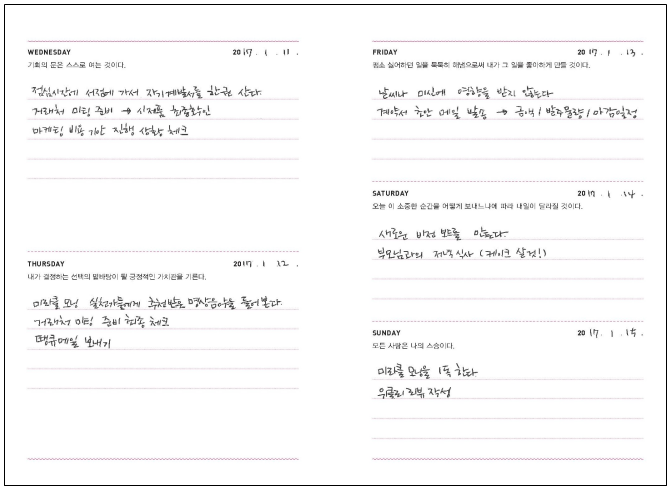 WEDNESDAY 2017 . 1 . 11 .
기회의 문은 스스로 여는 것이다.
점심시간에 서점에 가서 자기계발서를 한권 산다
거래처 미팅 준비 → 신제품 최종확인
마케팅 비용 기안 진행 상황 체크
THURSDAY 2017 . 1 . 12 .
내가 결정하는 선택의 밑바탕이 될 긍정적인 가치관을 기른다.
미라클 모닝 실천가들에게 추천받은 명상음악을 틀어본다.
거래처 미팅 준비 최종 체크
땡큐메일 보내기
FRIDAY 2017 . 1 . 13 .
평소 싫어하던 일을 묵묵히 해냄으로써 내가 그 일을 좋아하게 만들 것이다.
날씨나 미신에 영향을 받지 않는다
계약서 초안 메일 발송 → 금액 / 발주물량 / 마감일정
SATURDAY 2017 . 1 . 14 .
오늘 이 소중한 순간을 어떻게 보내느냐에 따라 내일이 달라질 것이다.
새로운 비전 보드를 만든다.
부모님과의 저녁식사 (케이크 살것!)
SUNDAY 2017 . 1 . 15 .
모든 사람은 나의 스승이다.
미라클 모닝을 1독 한다
위클리 리뷰 작성